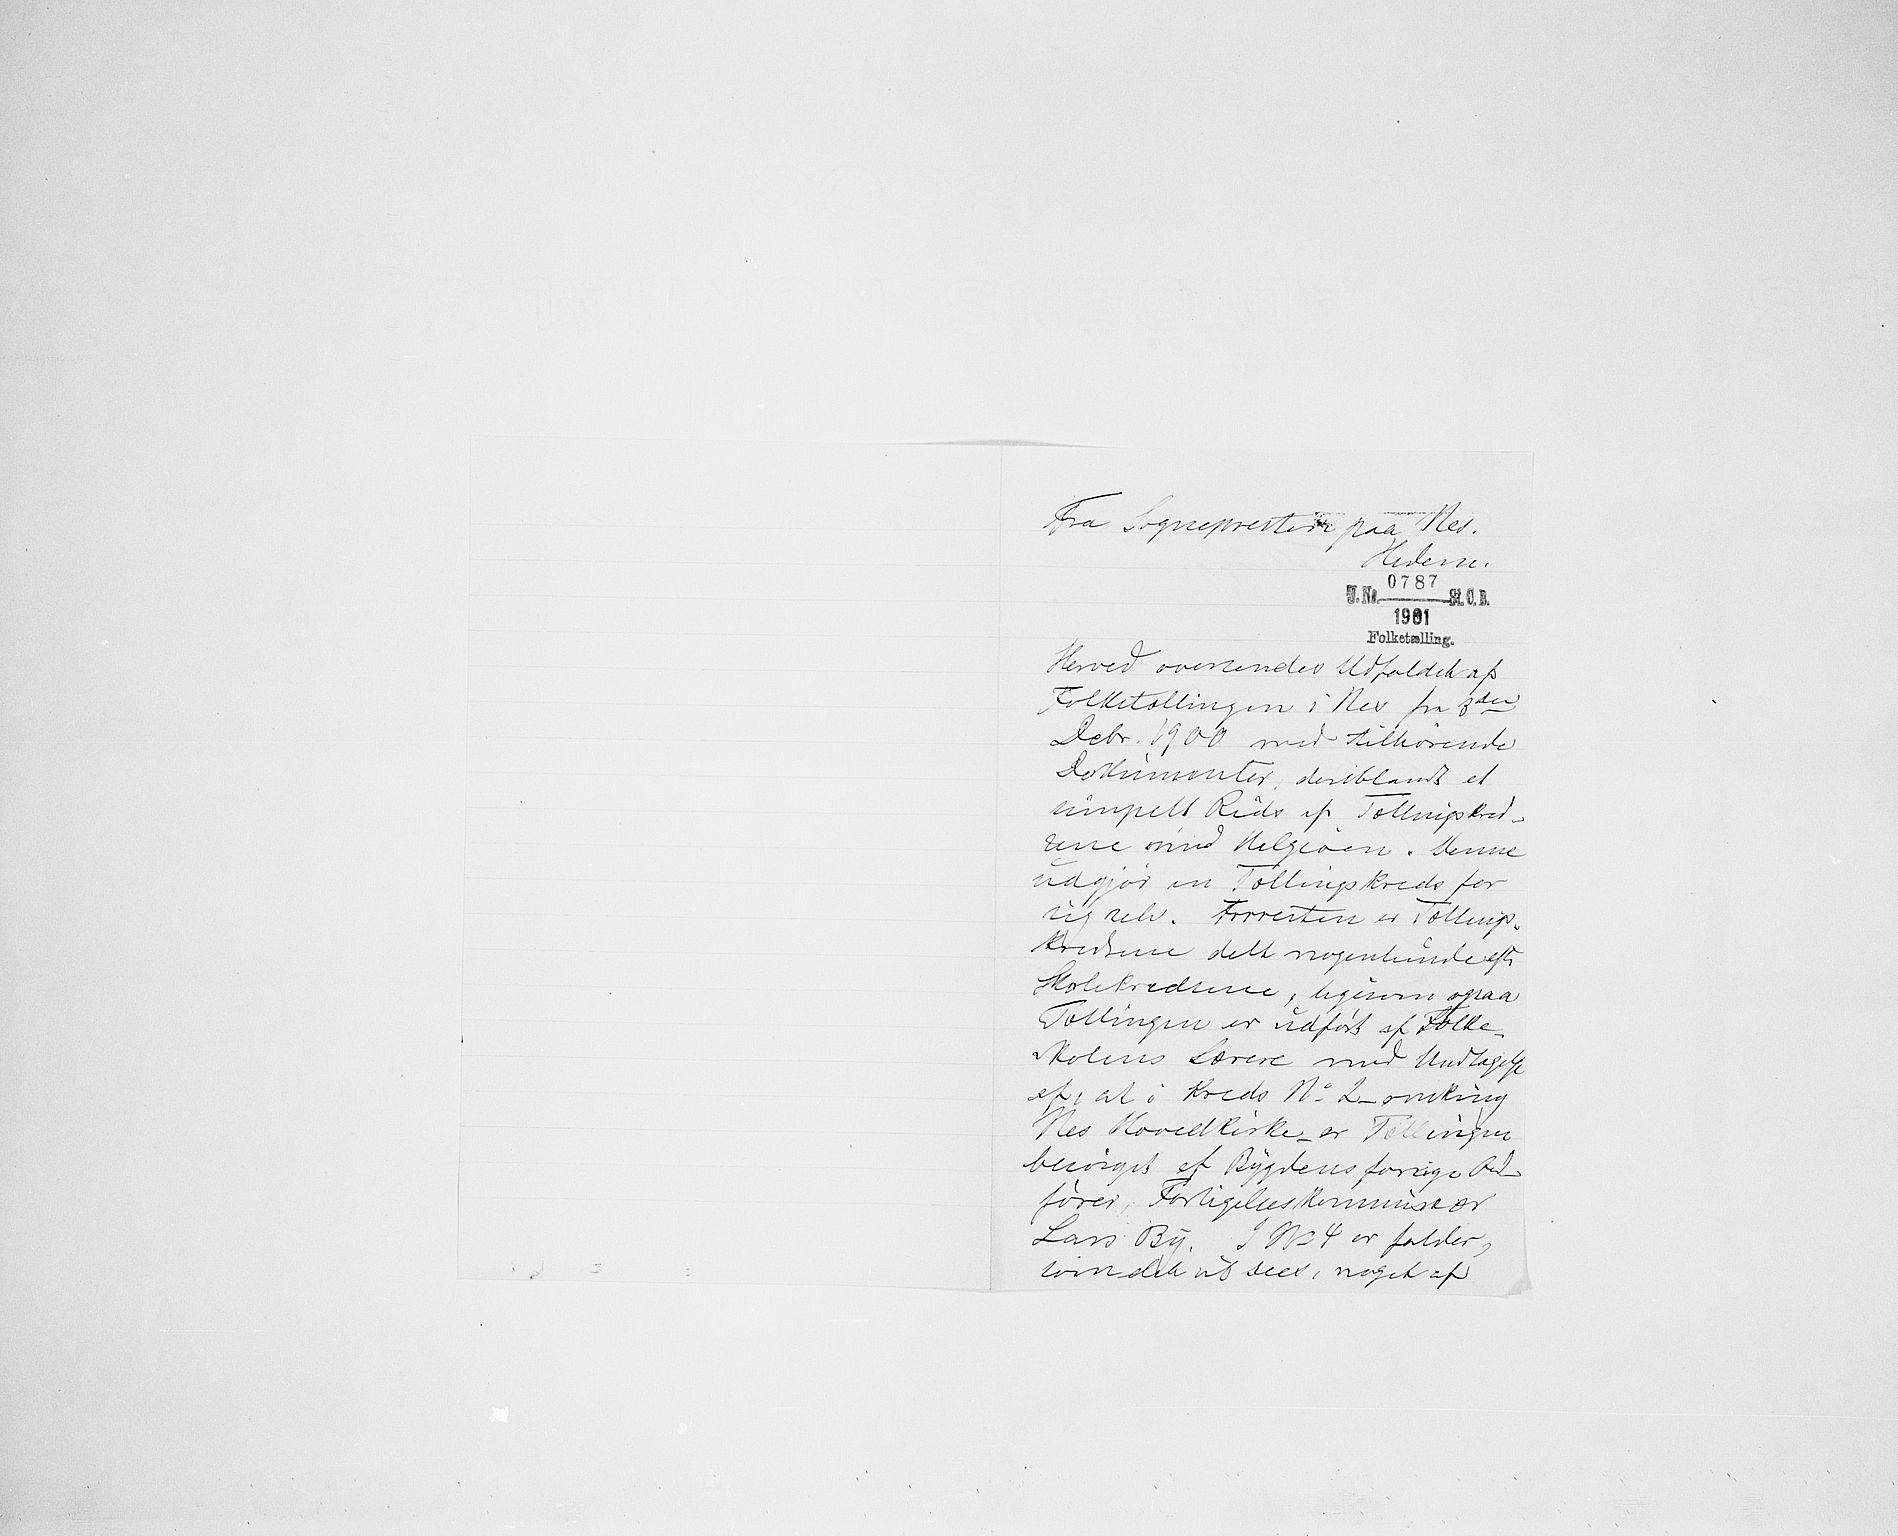 Fra Sognepresten paa Nes.
Hedem.
0787
J. No. St. C. B.
1901
Folketælling.
Herved oversendes Udfaldet af
Folketællingen i Nes fra 3die
Decbr. 1900 med tilhørende
Dokumenter, deriblandt et
simpelt Rids af Tællingskred-
sene med Helgøen. Denne
udgjør en Tællingskreds for
sig selv. Forresten er Tællings-
kredsene delt nogenlunde efter
Skolekredsene, ligesom ogsaa
Tællingen er udført af Folke-
skolens Lærere med Undtagelse
af, at i Kreds No 2 - omkring
Nes Hovedkirke - er Tællingen
besørget af Bygdens forrige Ord-
fører, Forligelseskommissær
Lars By. I No 4 er falder,
som det vil sees, noget af